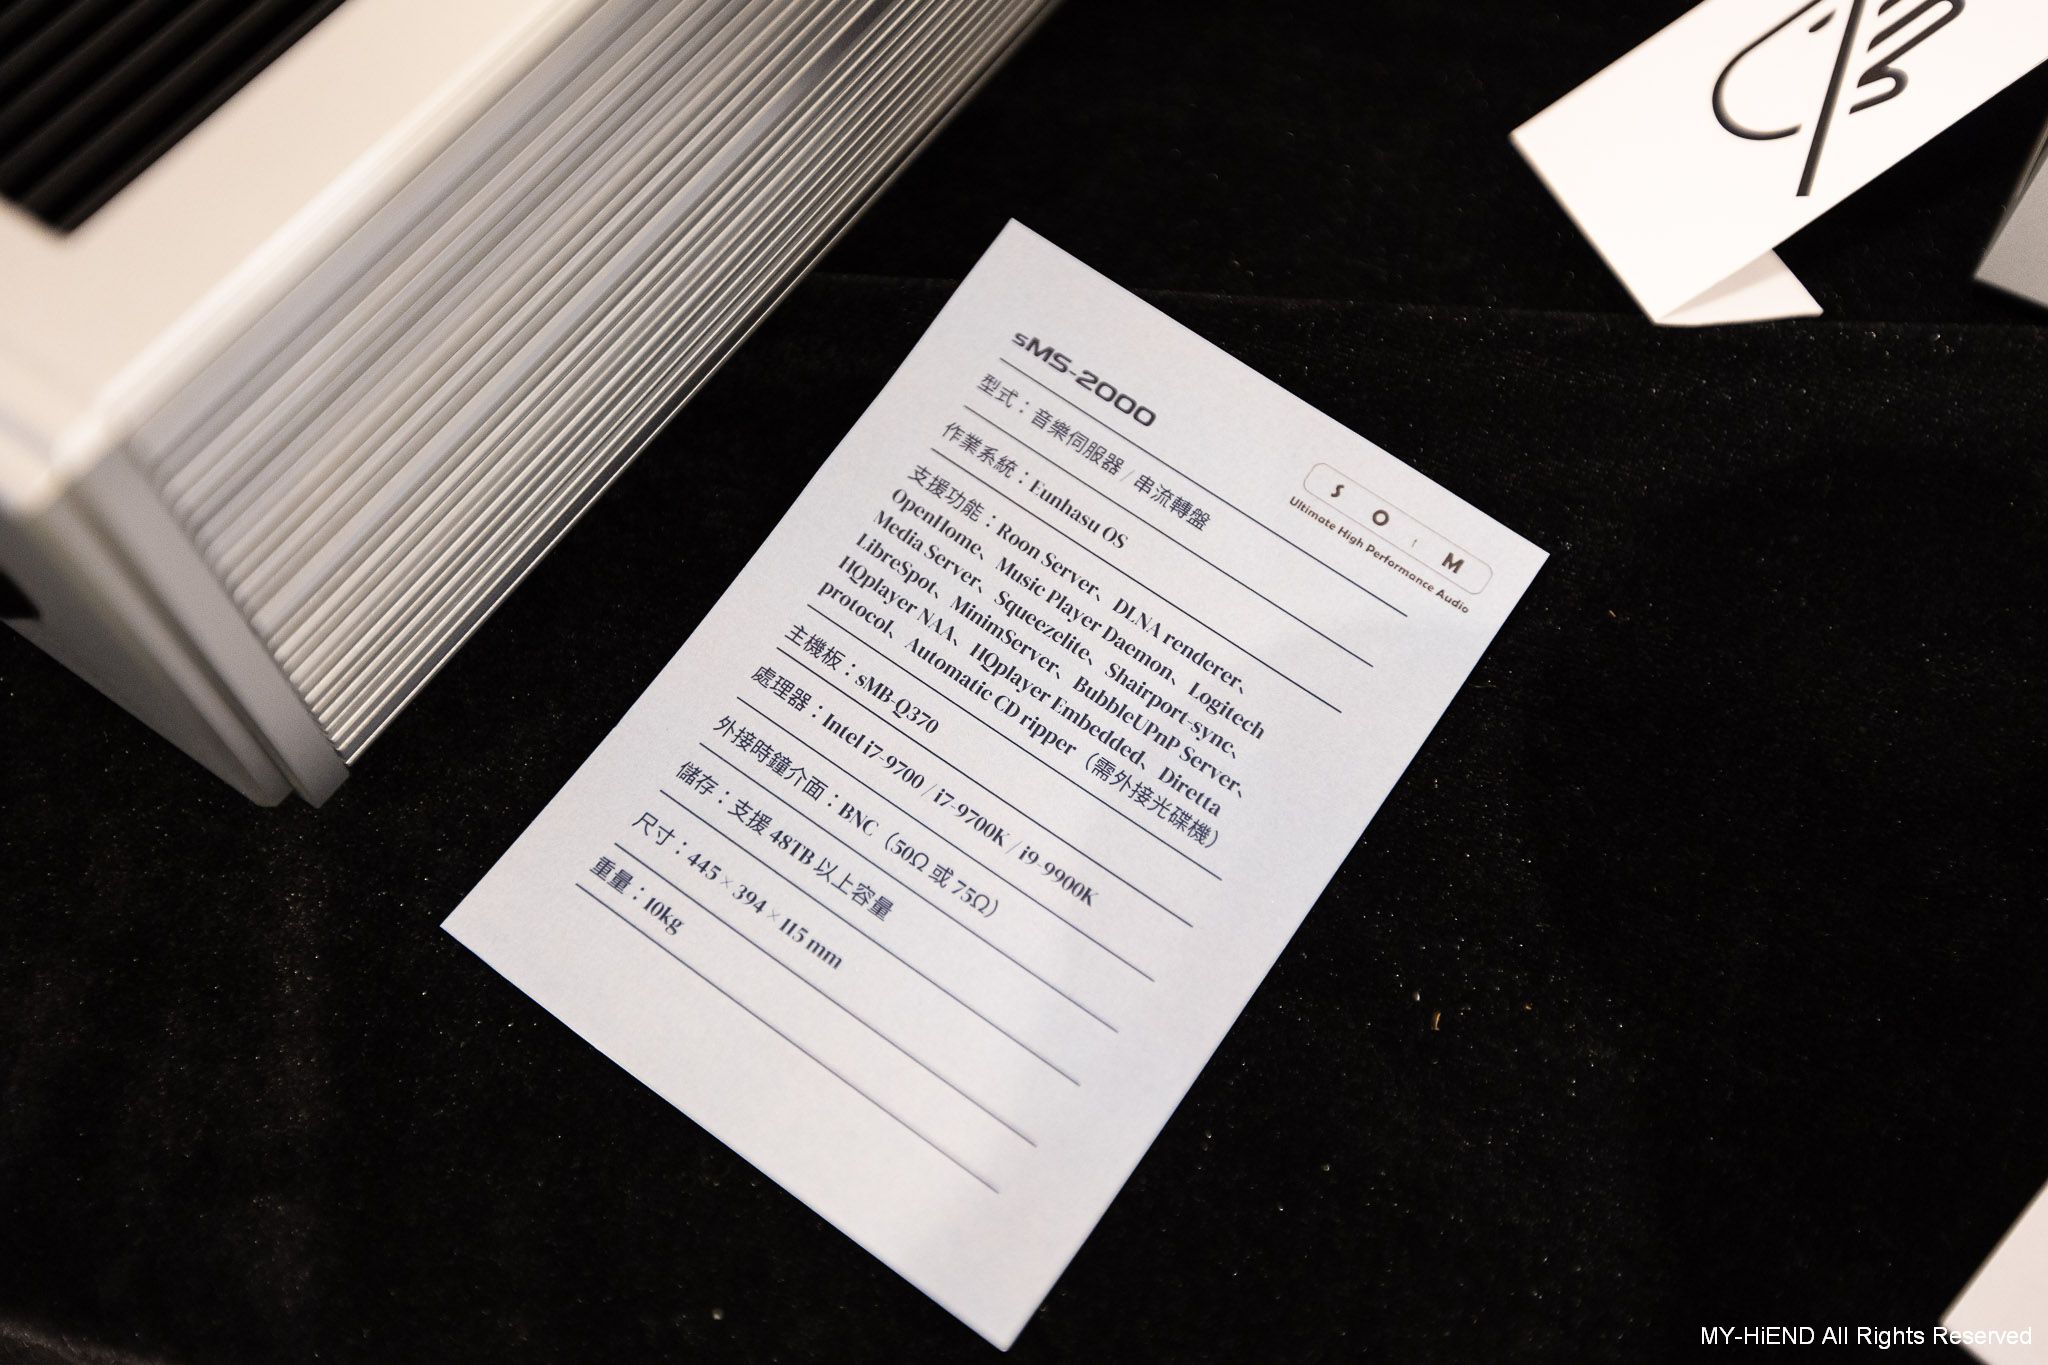 sMS-2000
SOtM
Ultimate High Performance Audio
型式：音樂伺服器 / 串流轉盤
作業系統：Eunhasu OS
支援功能：Roon Server、DLNA renderer、
OpenHome、Music Player Daemon、Logitech
Media Server、Squeezelite、Shairport-sync、
LibreSpot、MinimServer、BubbleUPnP Server、
HQplayer NAA、HQplayer Embedded、Diretta
protocol、Automatic CD ripper（需外接光碟機）
主機板：sMB-Q370
處理器：Intel i7-9700 / i7-9700K / i9-9900K
外接時鐘介面：BNC（50Ω 或 75Ω）
儲存：支援 48TB 以上容量
尺寸：445 × 394 × 115 mm
重量：10kg
MY-HiEND All Rights Reserved